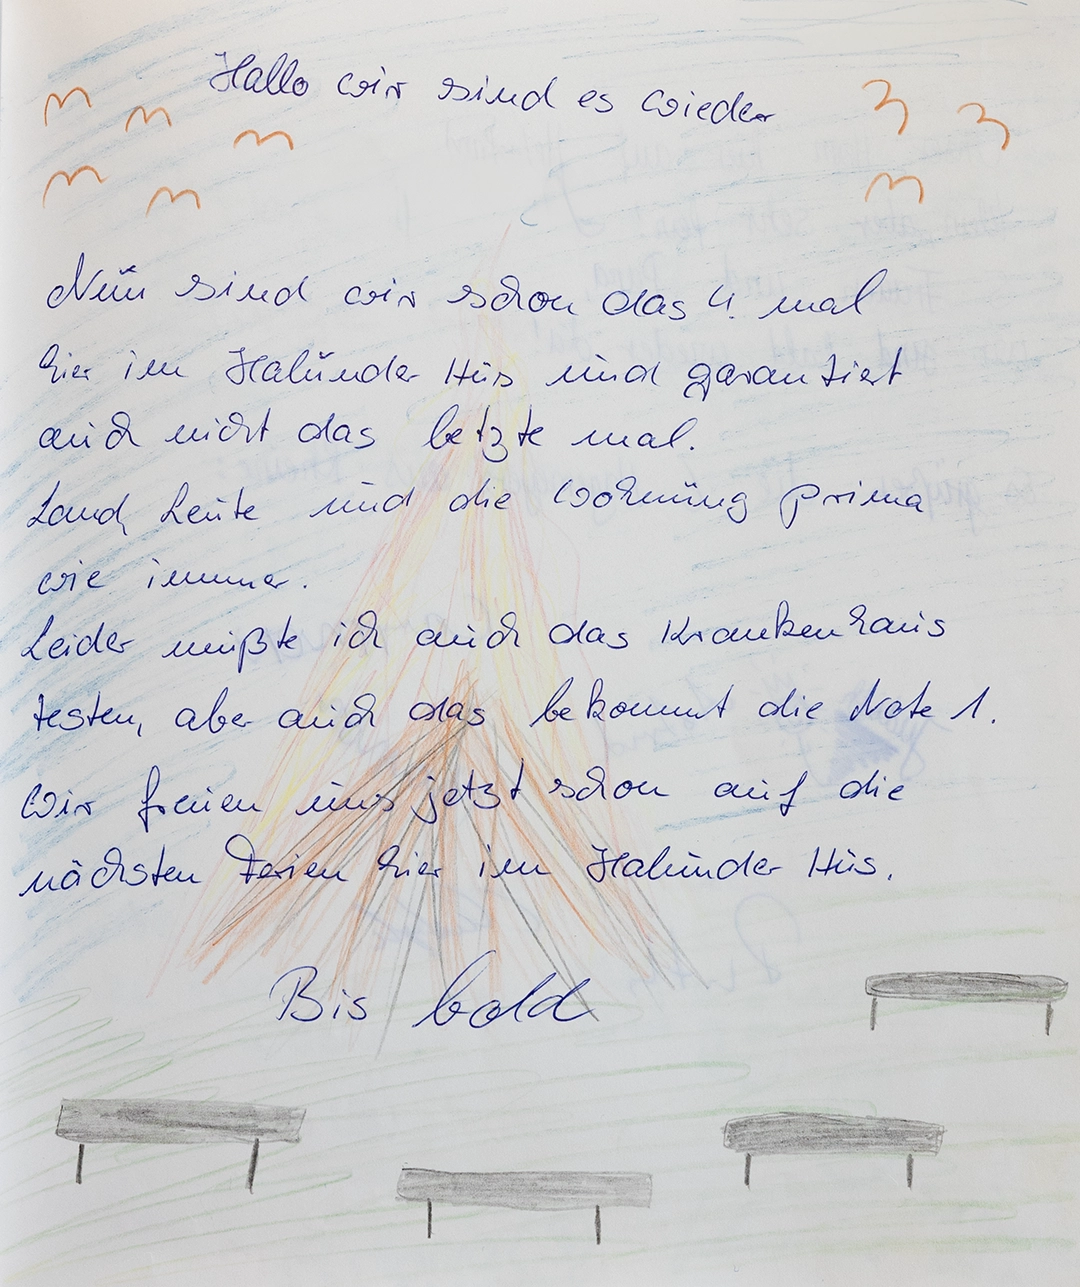 Hallo wir sind es wieder
Nun sind wir schon das 4. mal
hier im Halunder Hüs und garantiert
auch nicht das letzte mal.
Land, Leute und die Wohnung prima
wie immer.
Leider mußte ich auch das Krankenhaus
testen, aber auch das bekommt die Note 1.
Wir freuen uns jetzt schon auf die
nächsten Ferien hier im Halunder Hüs.
Bis bald